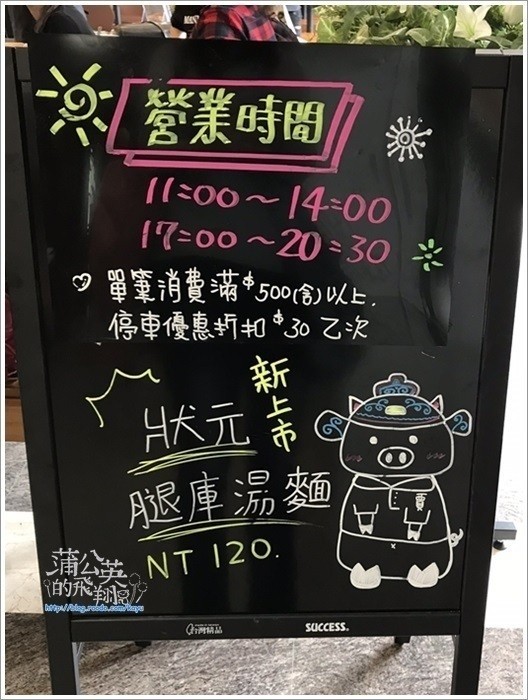 營業時間
11:00～14:00
17:00～20:30
單筆消費滿$500(含)以上.
停車優惠折扣$30乙次
新上市
狀元
腿庫湯麵
NT 120.
蒲公英
的飛翔
http://blog.roodo.com/kayu
台灣精品
SUCCESS